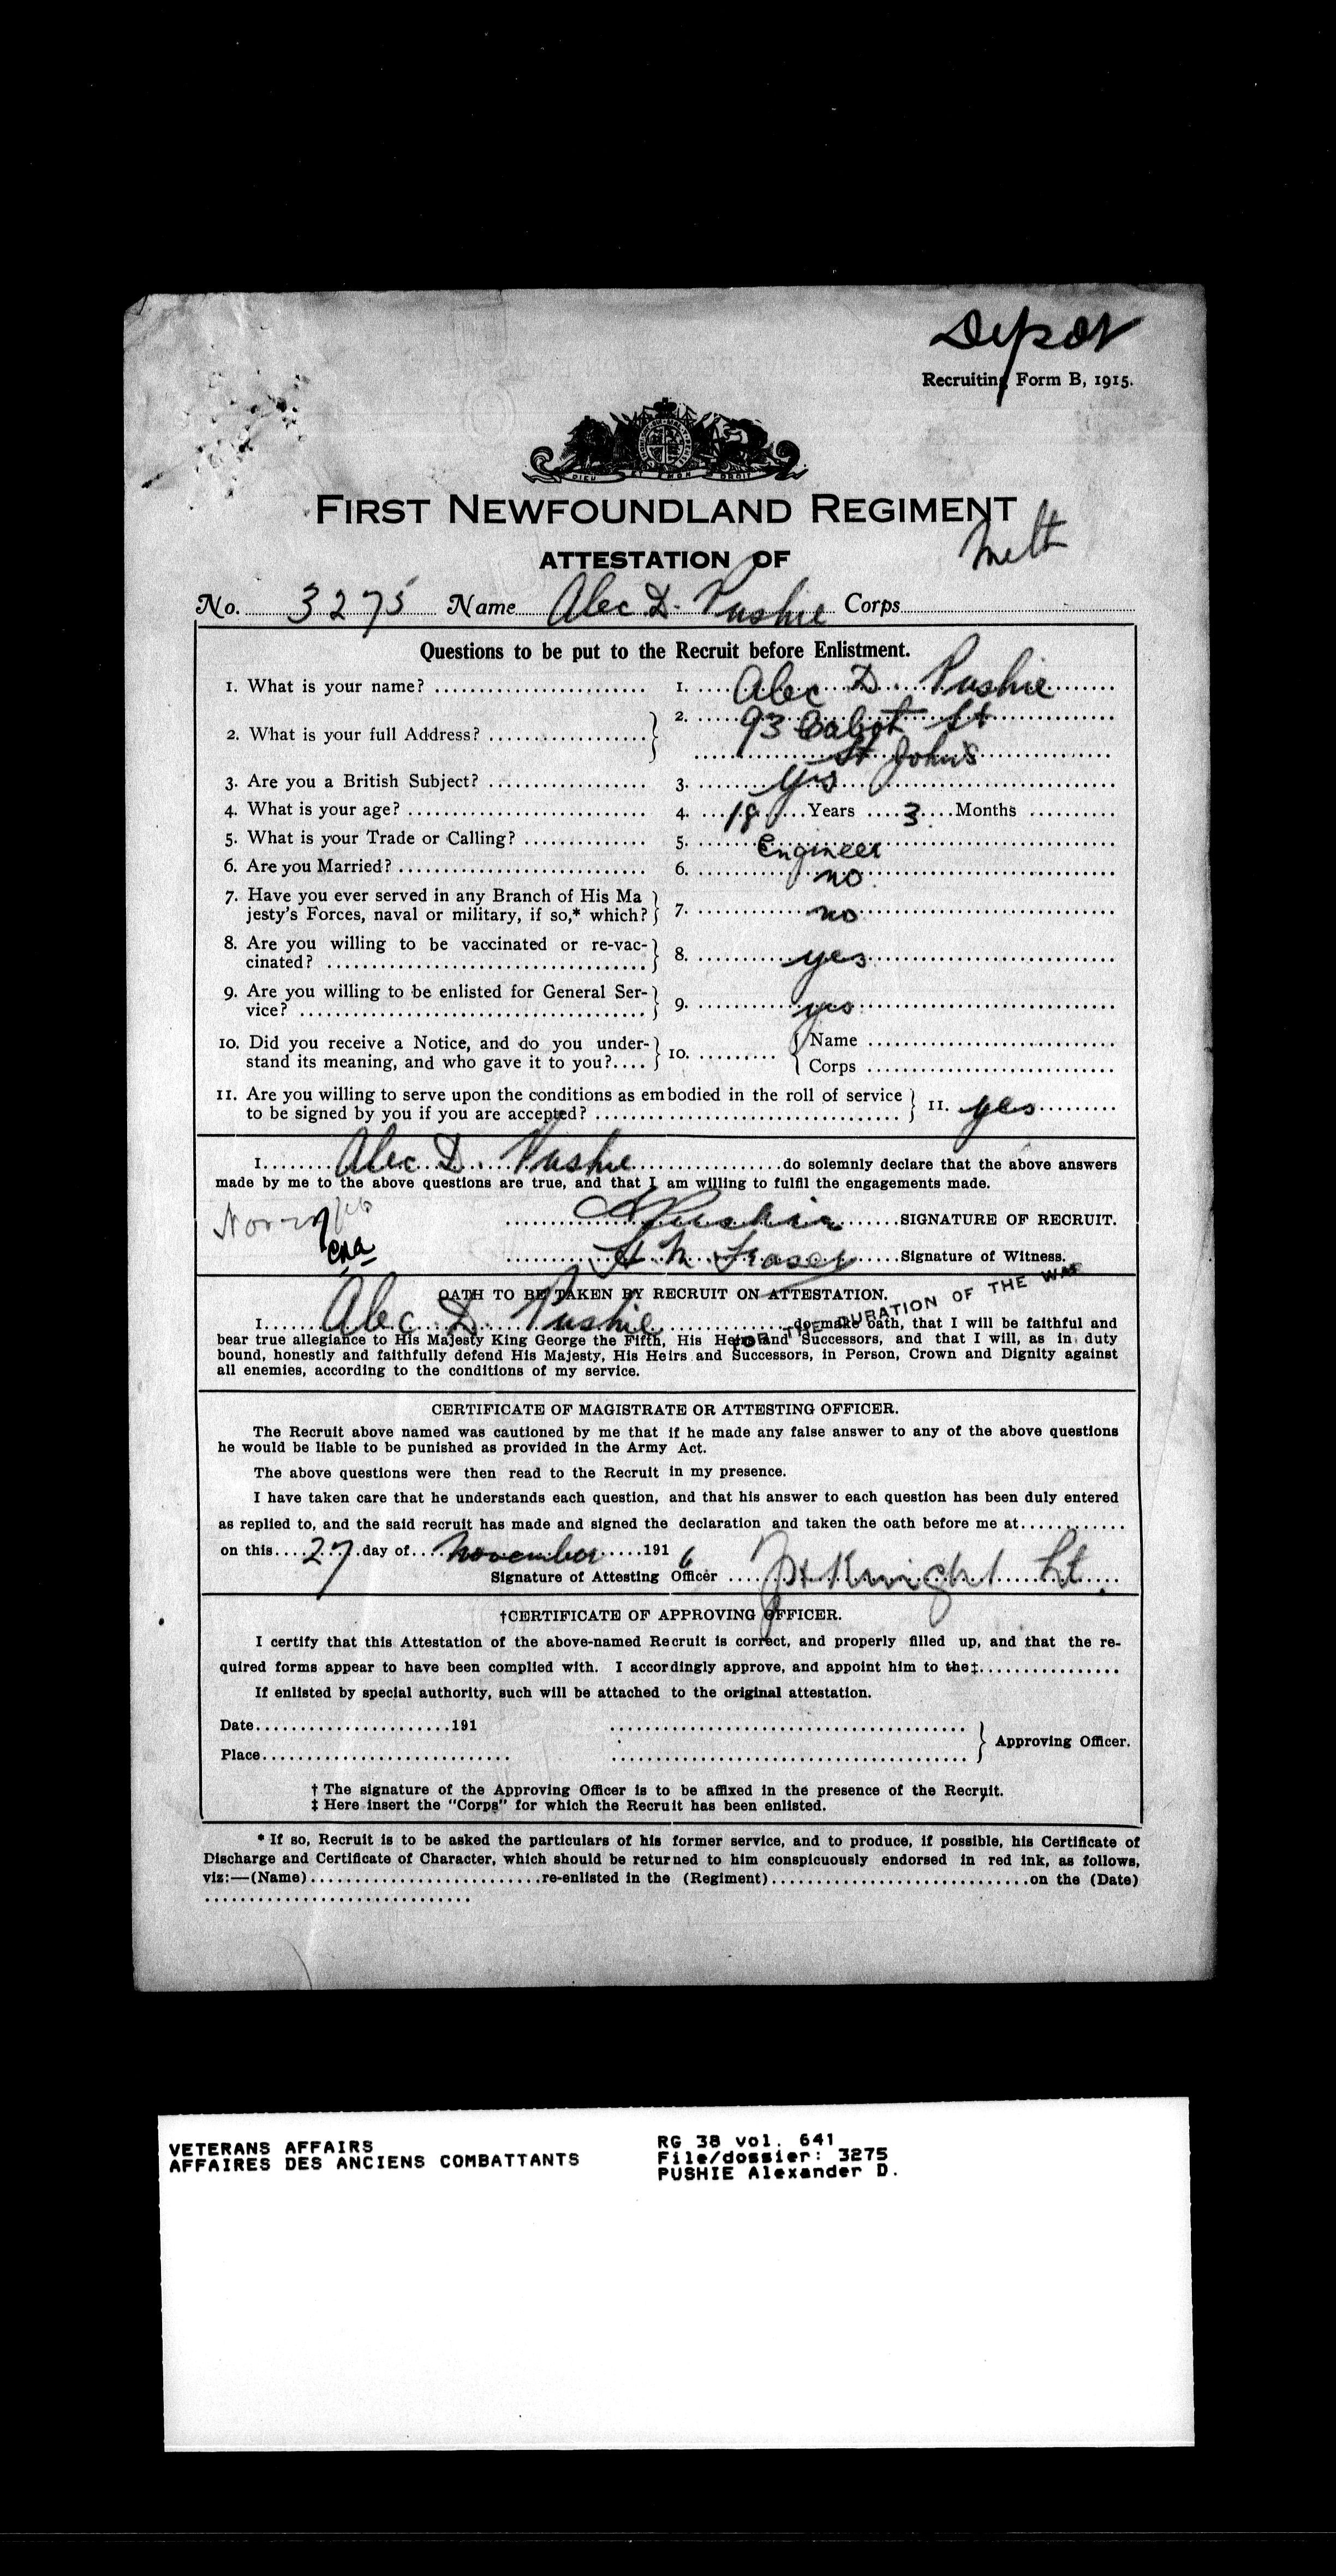 Depot
Recruiting Form B, 1915.
DIEU ET MON DROIT
FIRST NEWFOUNDLAND REGIMENT
Meth
ATTESTATION OF
No. 3275 Name Alec D. Pushie Corps
Questions to be put to the Recruit before Enlistment.
1. What is your name? 1. Alec D. Pushie
2. What is your full Address? 2. 93 Cabot St
St John's
3. Are you a British Subject? 3. Yes
4. What is your age? 4. 18 Years 3 Months
5. What is your Trade or Calling? 5. Engineer
6. Are you Married? 6. no
7. Have you ever served in any Branch of His Ma
jesty's Forces, naval or military, if so,* which? 7. no
8. Are you willing to be vaccinated or re-vac-
cinated? 8. yes
9. Are you willing to be enlisted for General Ser-
vice? 9. yes
10. Did you receive a Notice, and do you under- Name
stand its meaning, and who gave it to you? 10. Corps
11. Are you willing to serve upon the conditions as embodied in the roll of service
to be signed by you if you are accepted? 11. yes
I Alec D. Pushie do solemnly declare that the above answers
made by me to the above questions are true, and that I am willing to fulfil the engagements made.
A Pushie SIGNATURE OF RECRUIT.
H M Fraser Signature of Witness.
OATH TO BE TAKEN BY RECRUIT ON ATTESTATION.
FOR THE DURATION OF THE WAR
I Alec D. Pushie do make oath, that I will be faithful and
bear true allegiance to His Majesty King George the Fifth, His Heirs and Successors, and that I will, as in duty
bound, honestly and faithfully defend His Majesty, His Heirs and Successors, in Person, Crown and Dignity against
all enemies, according to the conditions of my service.
CERTIFICATE OF MAGISTRATE OR ATTESTING OFFICER.
The Recruit above named was cautioned by me that if he made any false answer to any of the above questions
he would be liable to be punished as provided in the Army Act.
The above questions were then read to the Recruit in my presence.
I have taken care that he understands each question, and that his answer to each question has been duly entered
as replied to, and the said recruit has made and signed the declaration and taken the oath before me at
on this 27 day of November 1916
Signature of Attesting Officer Knight Lt.
†CERTIFICATE OF APPROVING OFFICER.
I certify that this Attestation of the above-named Recruit is correct, and properly filled up, and that the re-
quired forms appear to have been complied with. I accordingly approve, and appoint him to the‡
If enlisted by special authority, such will be attached to the original attestation.
Date 191
Place Approving Officer.
† The signature of the Approving Officer is to be affixed in the presence of the Recruit.
‡ Here insert the "Corps" for which the Recruit has been enlisted.
* If so, Recruit is to be asked the particulars of his former service, and to produce, if possible, his Certificate of
Discharge and Certificate of Character, which should be returned to him conspicuously endorsed in red ink, as follows,
viz:—(Name) re-enlisted in the (Regiment) on the (Date)
VETERANS AFFAIRS
AFFAIRES DES ANCIENS COMBATTANTS
RG 38 vol. 641
File/dossier: 3275
PUSHIE Alexander D.